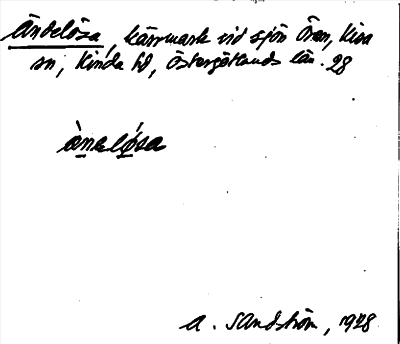 Ändelösa, kärrmark vid sjön Ören, Kisa
sn, Kinda hd, Östergötlands län. 28
ànelǿsa
A. Sandström, 1928